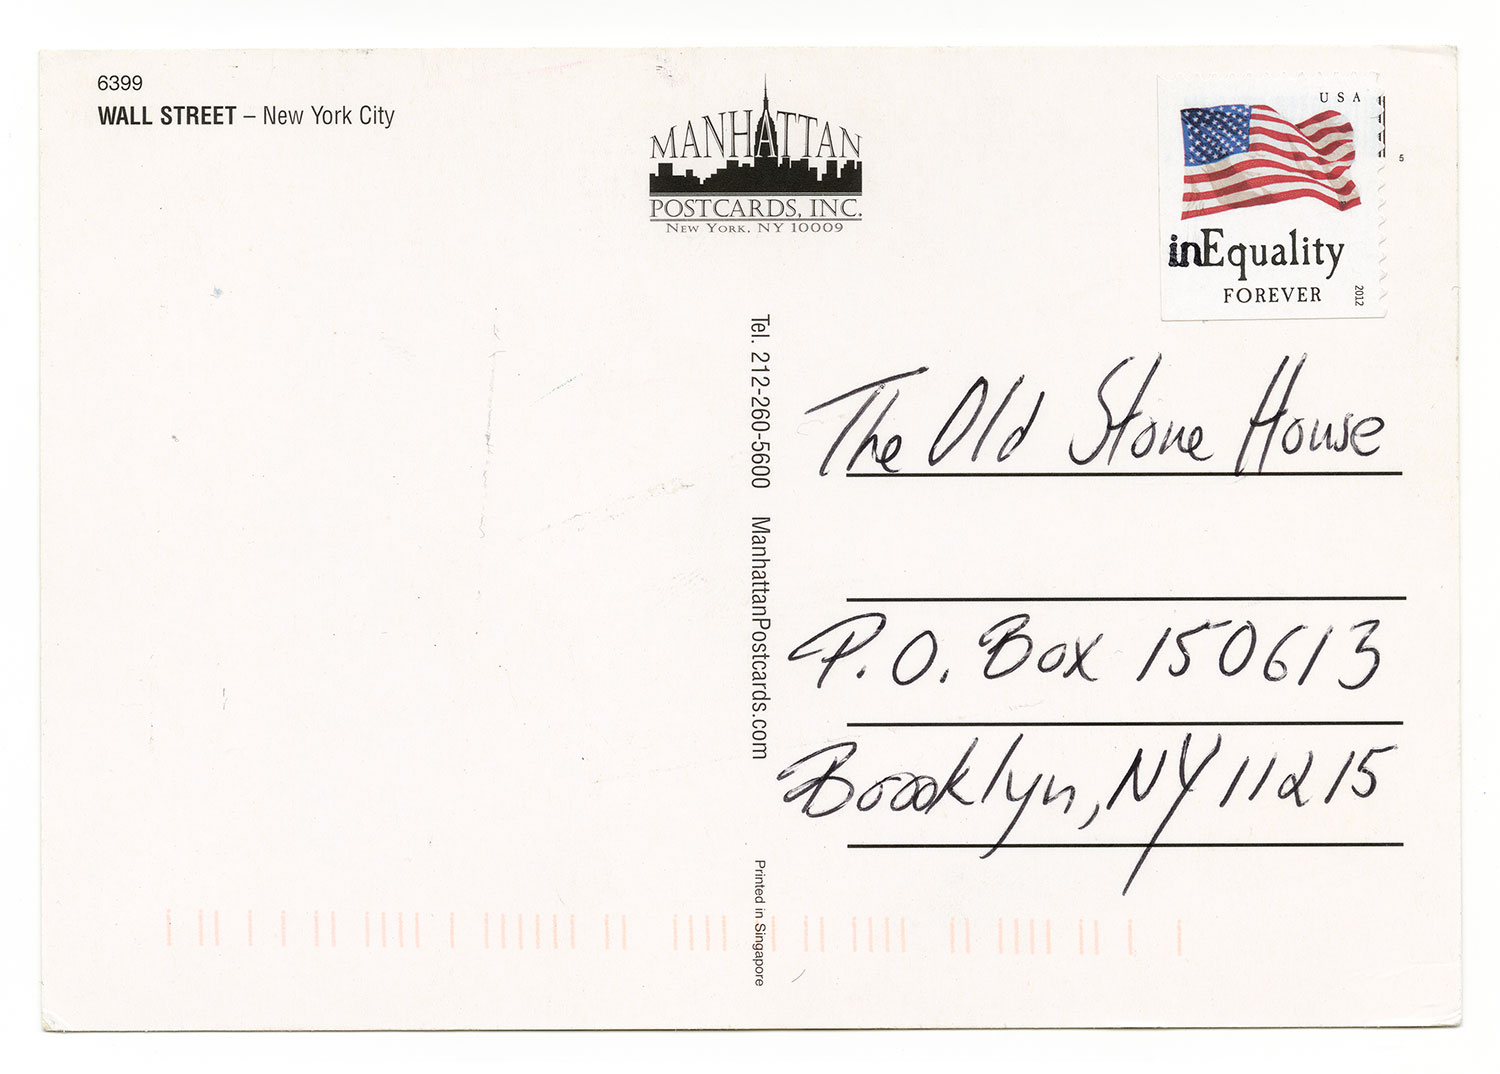 6399
WALL STREET – New York City
MANHATTAN
POSTCARDS, INC.
NEW YORK, NY 10009
USA
inEquality
FOREVER
2012
5
Tel. 212-260-5600 ManhattanPostcards.com
Printed in Singapore
The Old Stone House
P.O. Box 150613
Brooklyn, NY 11215